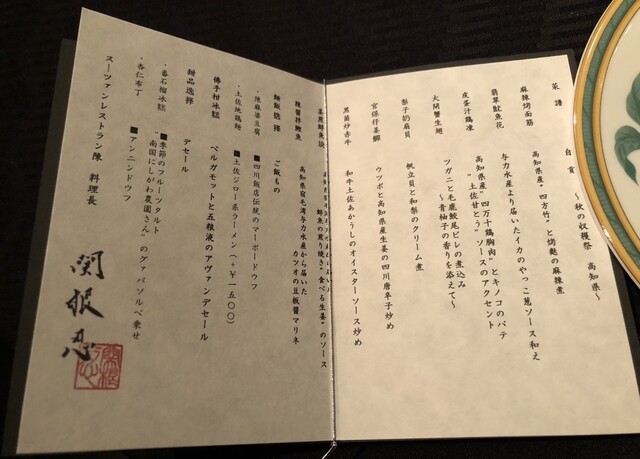 菜譜
白貪
～秋の収穫祭 高知県～
麻辣烤面筋
高知県産“四方竹”と烤麩の麻辣煮
翡翠魷魚花
与力水産より届いたイカのやっこ葱ソース和え
皮蛋汁鶏凍
高知県産“四万十鶏胸肉”とキノコのパテ
“土佐甘とう”ソースのアクセント
大閘蟹生翅
ツガニと毛鹿鮫尾ビレの煮込み
～青柚子の香りを添えて～
梨子奶扇貝
帆立貝と和梨のクリーム煮
宮保仔姜鱓
ウツボと高知県産生姜の四川唐辛子炒め
黒菌炒赤牛
和牛土佐あかうしのオイスターソース炒め
姜煎鮮魚塊
鮮魚の煎り焼き“食べる生姜”のソース
辣醤拌鰹魚
高知県宿毛湾与力水産から届いた
カツオの豆板醤マリネ
麺飯選擇
ご飯もの
・陳麻婆豆腐
■四川飯店伝統のマーボードウフ
・土佐絲鶏麺
■土佐ジロー系ラーメン（＋￥一五〇〇）
佛手柑冰糕
ベルガモットと五粮液のアヴァンデセール
甜品選擇
デセール
・番石榴冰糕
■季節のフルーツタルト
“南国にしがわ農園さん”のグァバソルベ乗せ
・杏仁布丁
■アンニンドウフ
スーツァンレストラン陳 料理長
関根忍